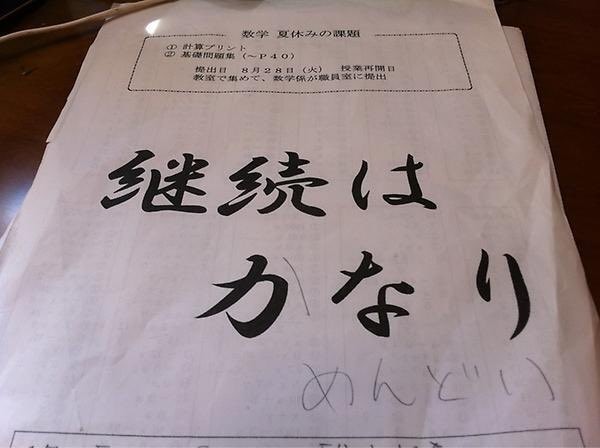 数学 夏休みの課題
① 計算プリント
② 基礎問題集（～P40）
提出日 8月28日（火） 授業再開日
教室で集めて、数学係が職員室に提出
継続は
力なり
めんどい